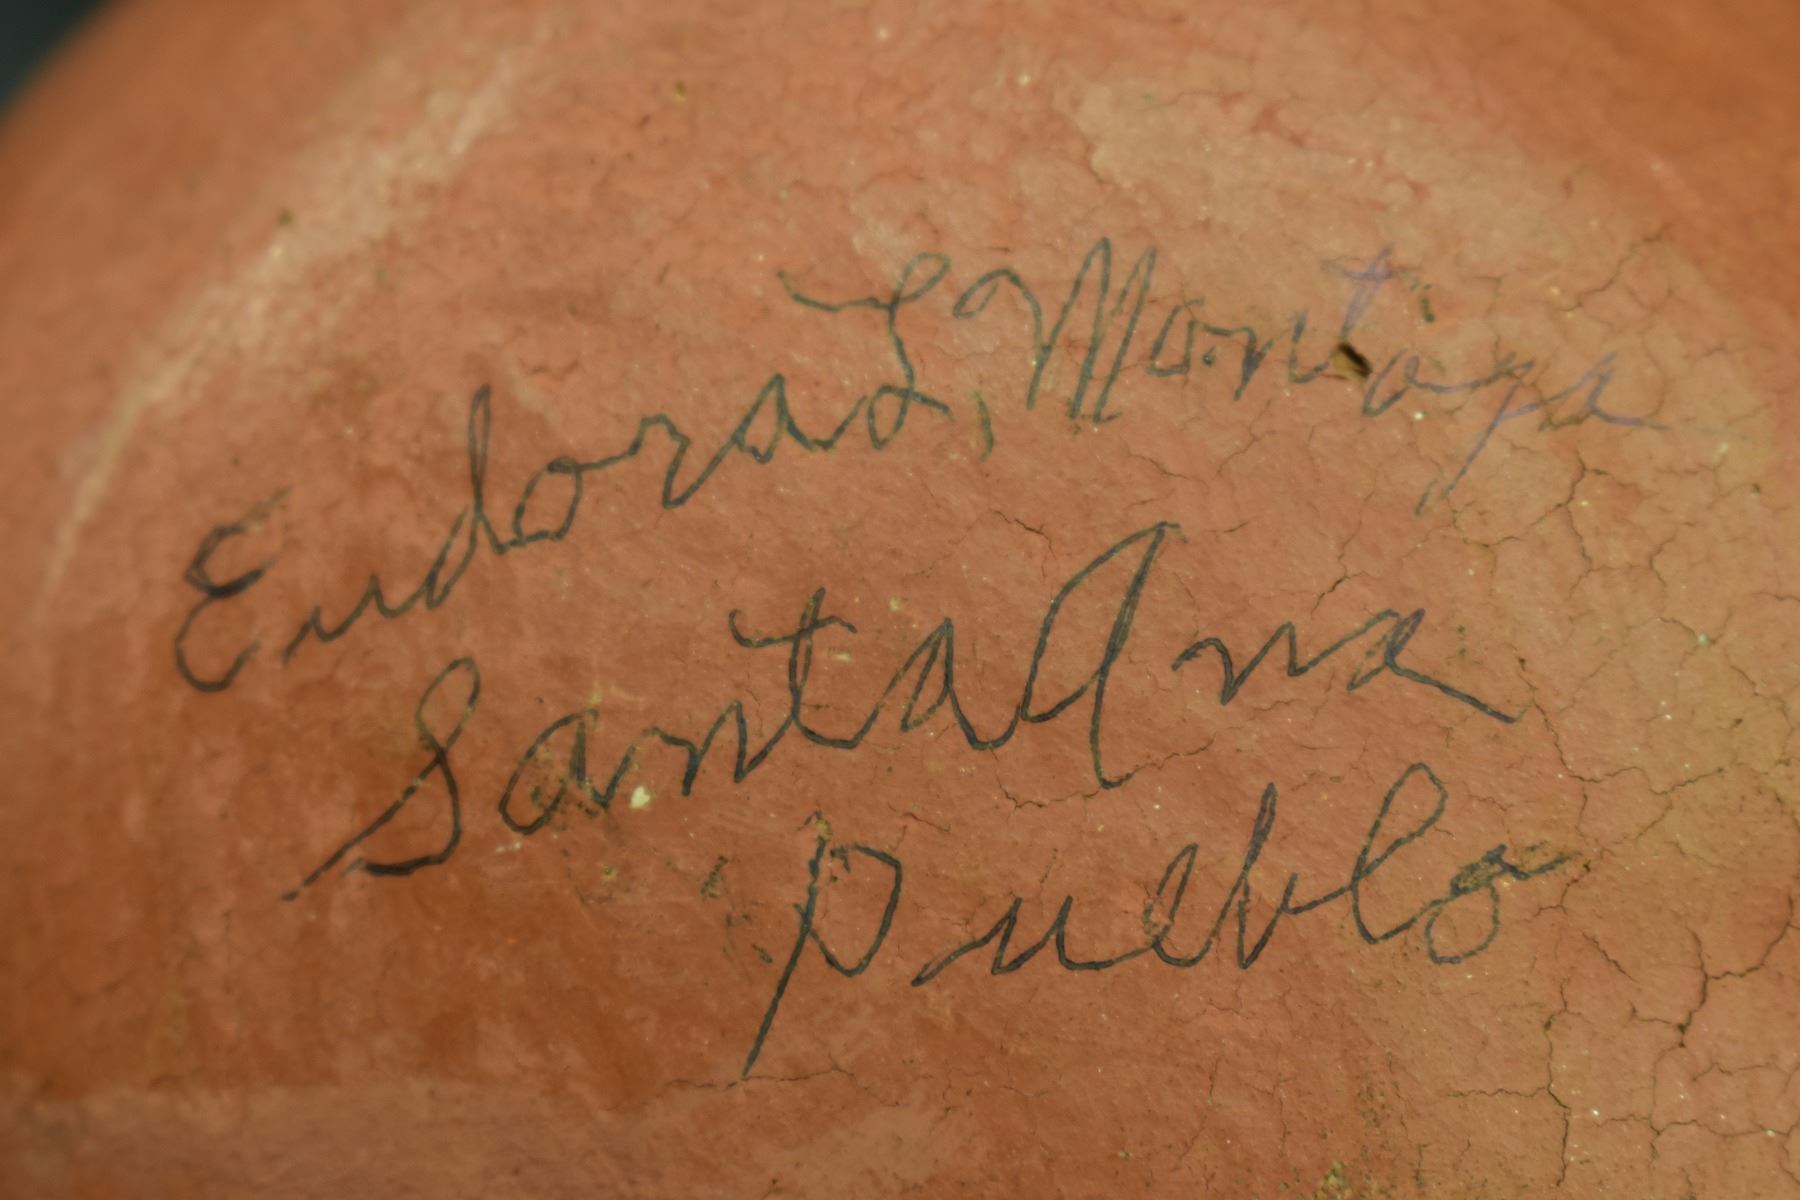 Eudora L, Montoya
Santa Ana
Pueblo